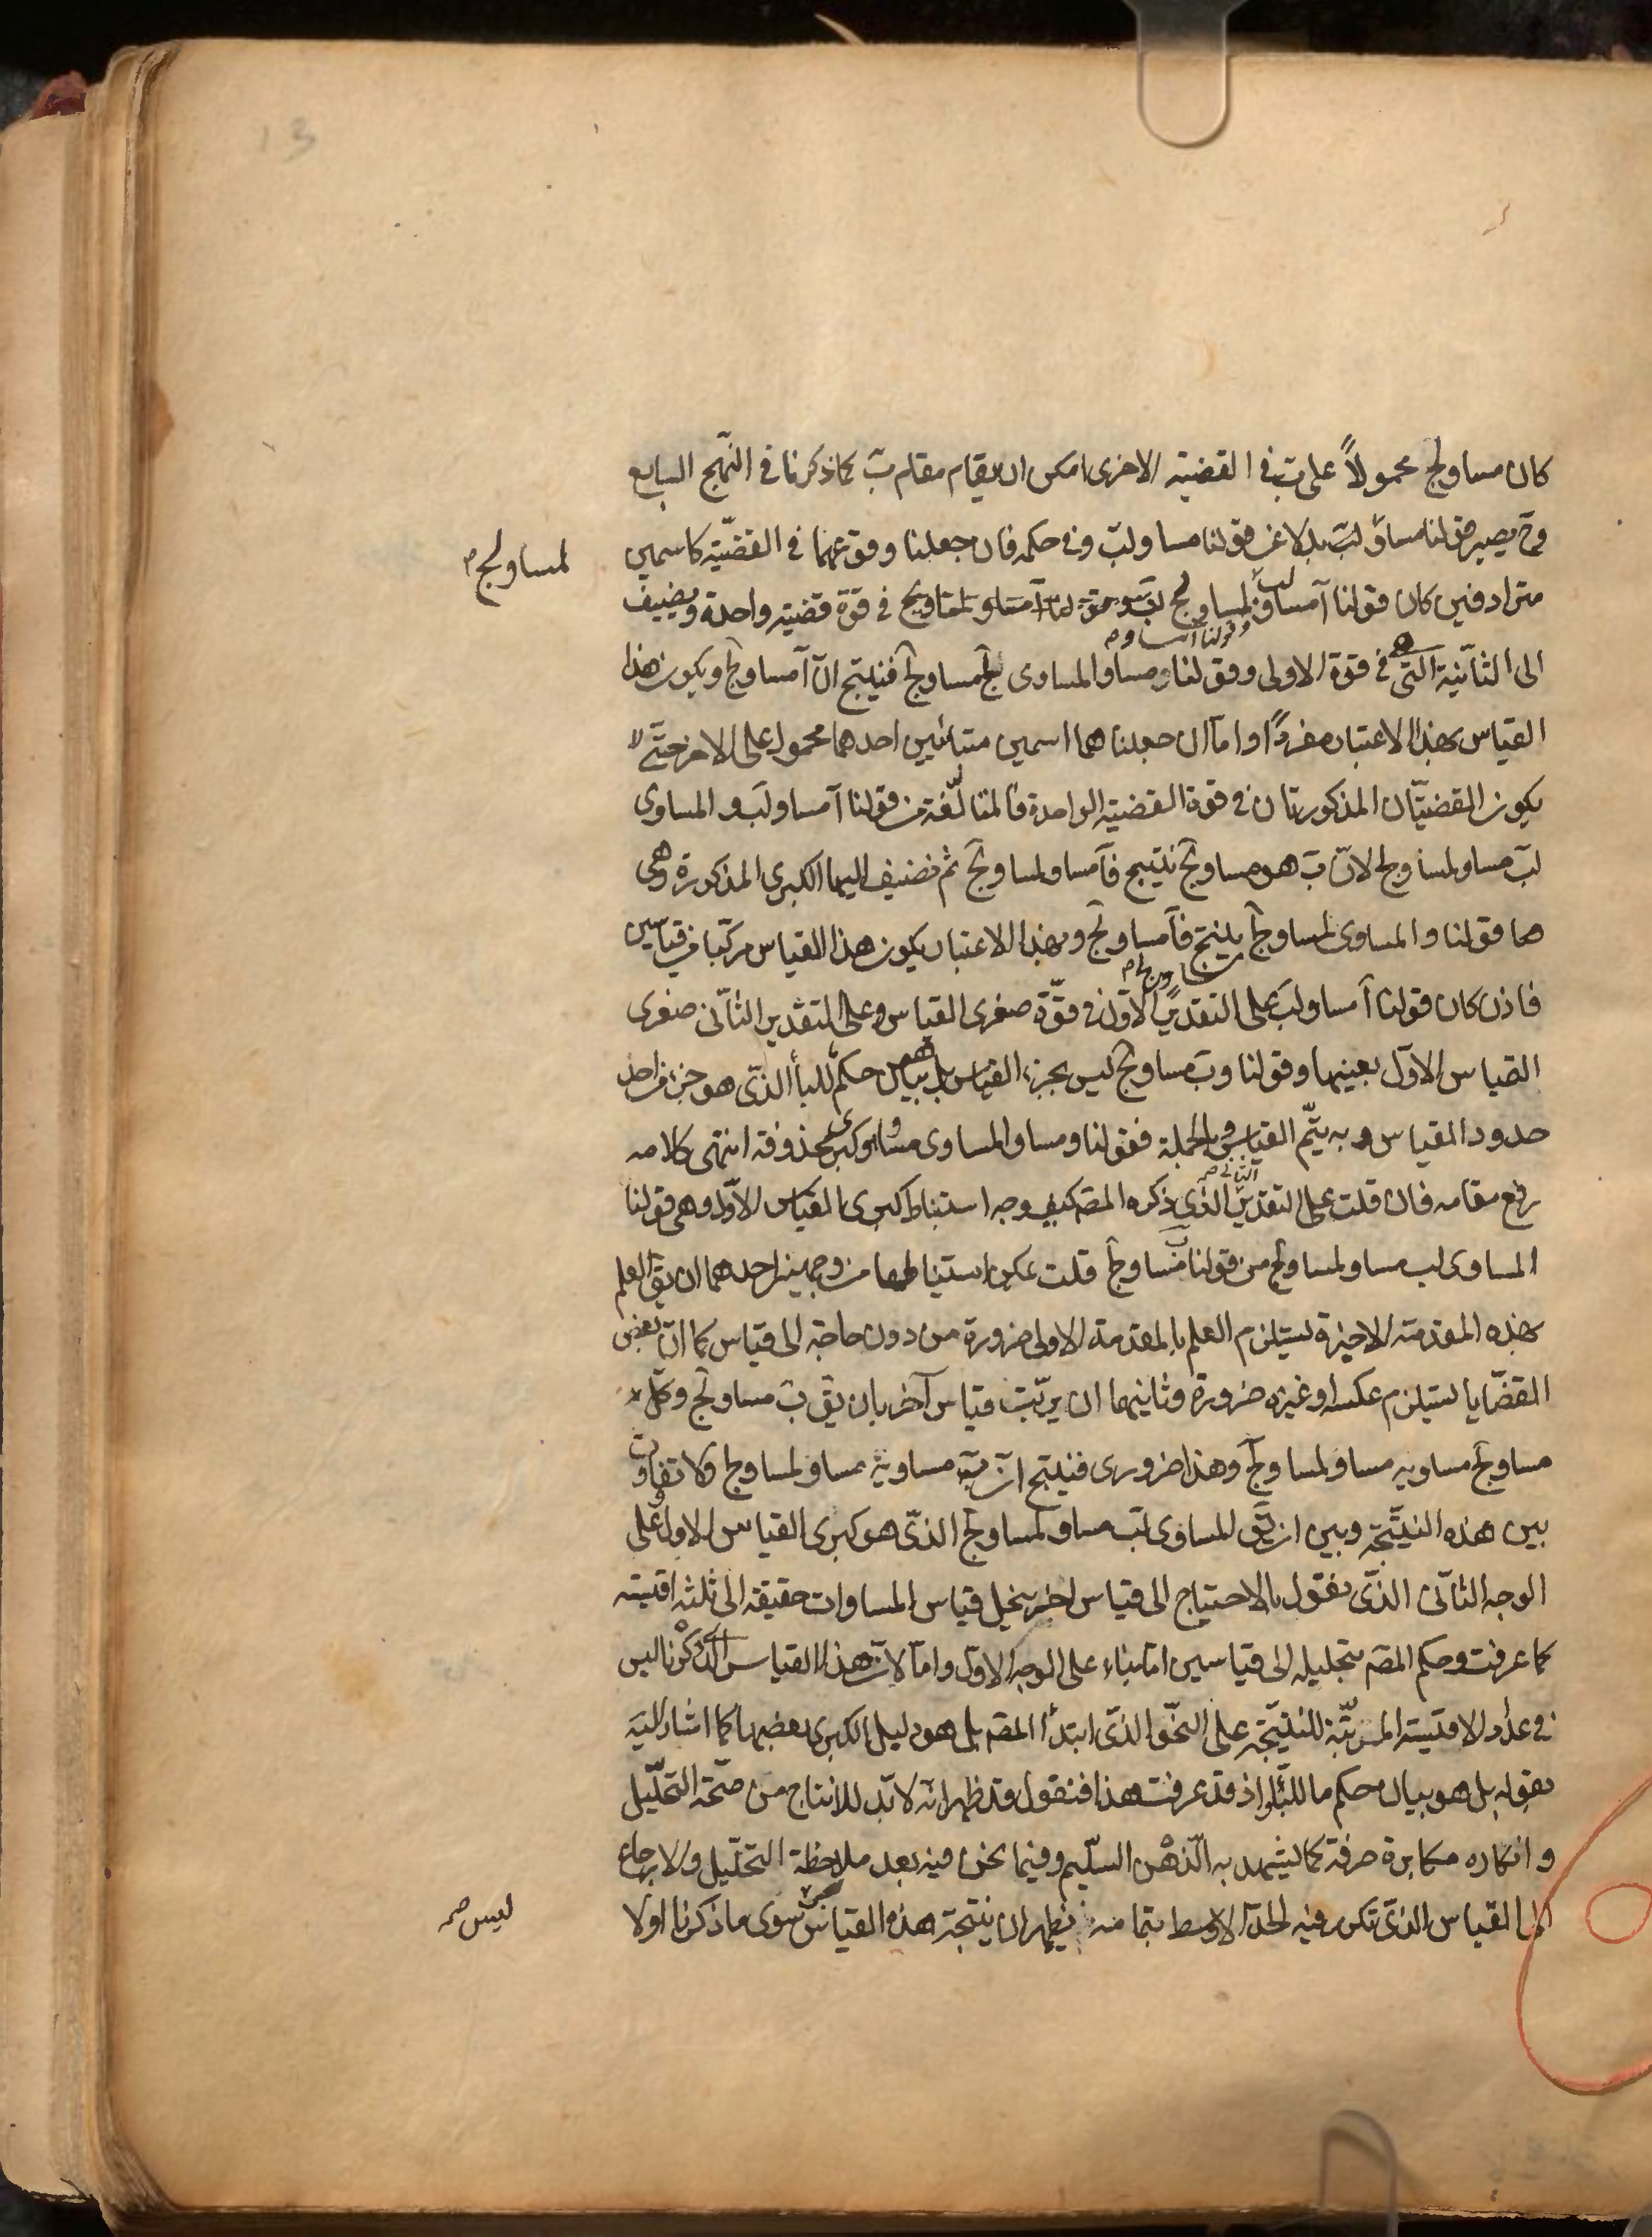 كان مساو لج محمولاً على ب في القضية الاخرى امكن ان يقام مقام ب كما ذكرنا في النهج السابع
وح يصير قولنا مساو لب بدلا عن قولنا مساو لب وفي حكمه فان جعلنا وقوعهما في القضية كاسمين
لمساو لج
مترادفين كان قولنا آ مساو لب لمساو لج في قوة قضية واحدة ويضيف
وقولنا آ مساو
الى الثانية التي هي في قوة الاولى وقولنا ومساو المساوى لج مساو لج فينتج ان آ مساو لج ويكون هذا
القياس بهذا الاعتبار مفردًا واما ان جعلناهما اسمين متباينين احدهما محمول على الاخر حتى لا
يكون القضيتان المذكورتان في قوة القضية الواحدة فالمتالفة من قولنا آ مساو لب والمساوى
لب مساو لمساو لج لان ب هو مساو لج ينتج فآ مساو لمساو لج ثم نضيف اليها الكبرى المذكورة وهى
هما قولنا والمساوى لمساو لج مساو لج ينتج فآ مساو لج وبهذا الاعتبار يكون هذا القياس مركبا من قياسين
فاذن كان قولنا آ مساو لب على التقدير الاول في قوة صغرى القياس وعلى التقدير الثانى صغرى
القياس الاول بعينها وقولنا وب مساو لج ليس بجزء القياس بل هو بيان حكم للبا الذى هو جزء من احد
حدود القياس وبه يتم القياس وبالجملة فقولنا ومساو المساوى مساو كبرى محذوفة انتهى كلامه
رفع مقامه فان قلت على التقدير الثانى الذى ذكره المصم كيف وجه استنباط كبرى القياس الاول وهى قولنا
المساوى لب مساو لمساو لج من قولنا ب مساو لج قلت يمكن استنباطها من وجهين احدهما ان يق العلم
بهذه المقدمة الاخيرة يستلزم العلم بالمقدمة الاولى ضرورة من دون حاجة الى قياس كما ان بعض
القضايا يستلزم عكسه او غيره ضرورة وثانيهما ان يرتب قياس آخر بان يق ب مساو لج وكل
مساو لج مساويه مساو لمساو لج وهذا ضرورى فينتج ان ب مساويه مساو لمساو لج ولا تفاوت
بين هذه النتيجة وبين ان يق المساوى لب مساو لمساو لج الذى هو كبرى القياس الاول وعلى
الوجه الثانى الذى نقول بالاحتياج الى قياس اخر ينحل قياس المساوات حقيقة الى ثلثه اقيسه
كما عرفت وحكم المصم بتحليله الى قياسين اما بناء على الوجه الاول واما لان هذا القياس الذى ذكرنا ليس
في عدد الاقيسة المرتبة للنتيجة على النحو الذى ابتدأ المصم بل هو دليل الكبرى بعضها كما اشار اليه
بقوله بل هو بيان حكم ما للبا واذ قد عرفت هذا فنقول قد ظهر انه لا بد للانتاج من صحة التحليل
وانكاره مكابرة صرفة كما يشهد به الذهن السليم وفيما نحن فيه بعد ملاحظة التحليل والارجاع
الى القياس الذى تكرر فيه الحد الاوسط بتمامه يظهر ان نتيجة هذه القياس سوى ما ذكرنا اولا
ليس صح